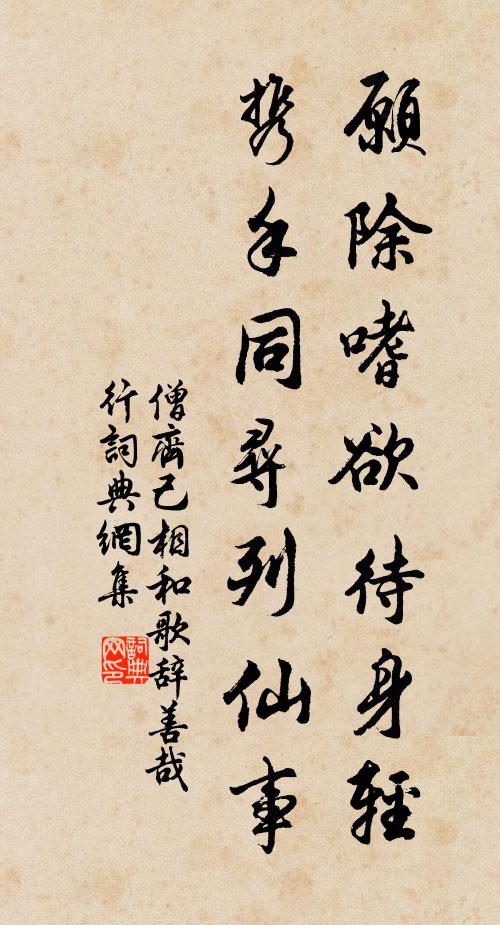 願除嗜欲待身輕
携手同尋列仙事
僧齊己相和歌辞善哉
行詞典網集
詞典网印